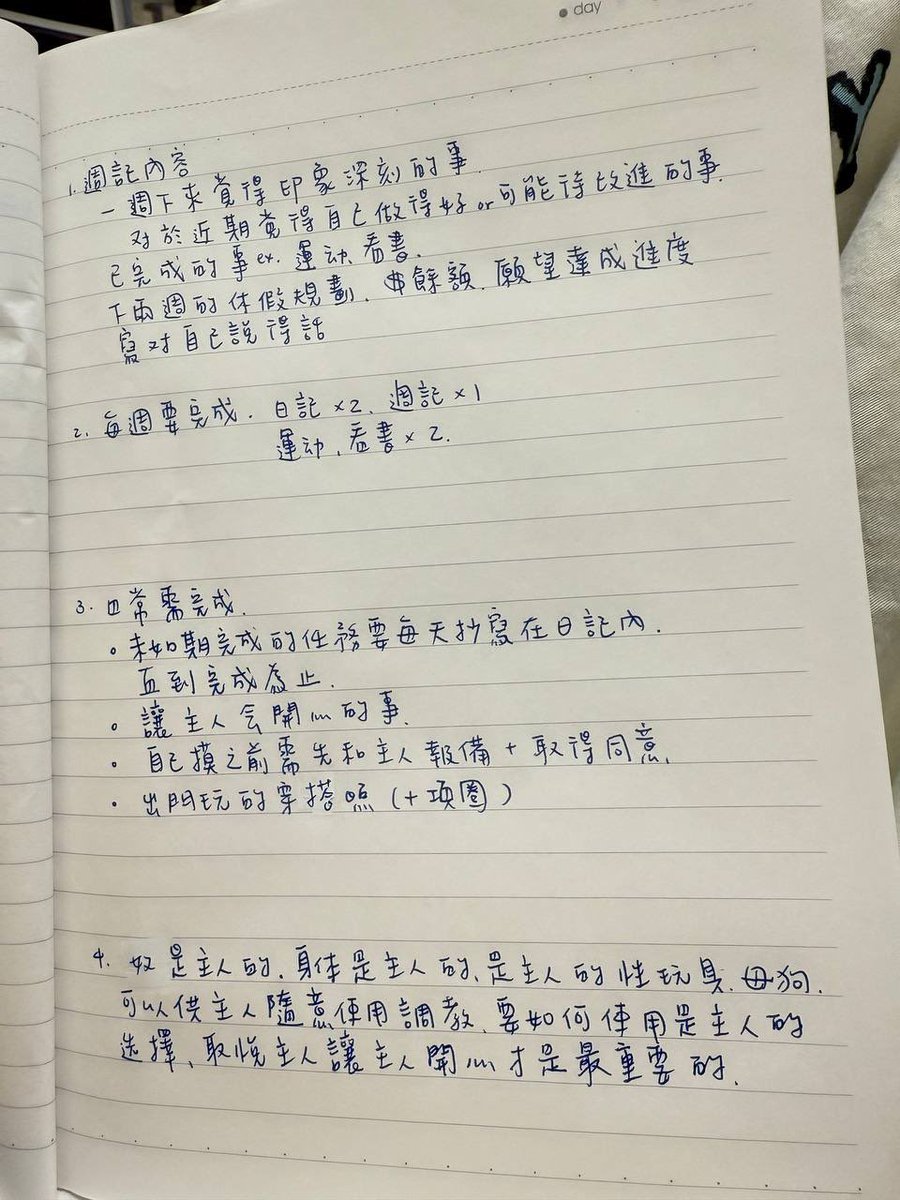 day
1. 週記內容
一週下來覺得印象深刻的事.
对於近期覺得自己做得好or可能待改進的事.
已完成的事ex. 運动、看書.
下兩週的休假規劃、餘額、願望達成進度
寫对自己說得話
2. 每週要完成. 日記×2、週記×1
運动、看書×2.
3. 日常需完成.
。未如期完成的任務要每天抄寫在日記內.
直到完成為止.
• 讓主人会開心的事.
• 自己摸之前需先和主人報備+取得同意.
• 出門玩的穿搭照(+項圈)
4. 奴是主人的、身体是主人的、是主人的性玩具、母狗.
可以供主人隨意使用調教、要如何使用是主人的
选擇、取悅主人讓主人開心才是最重要的.